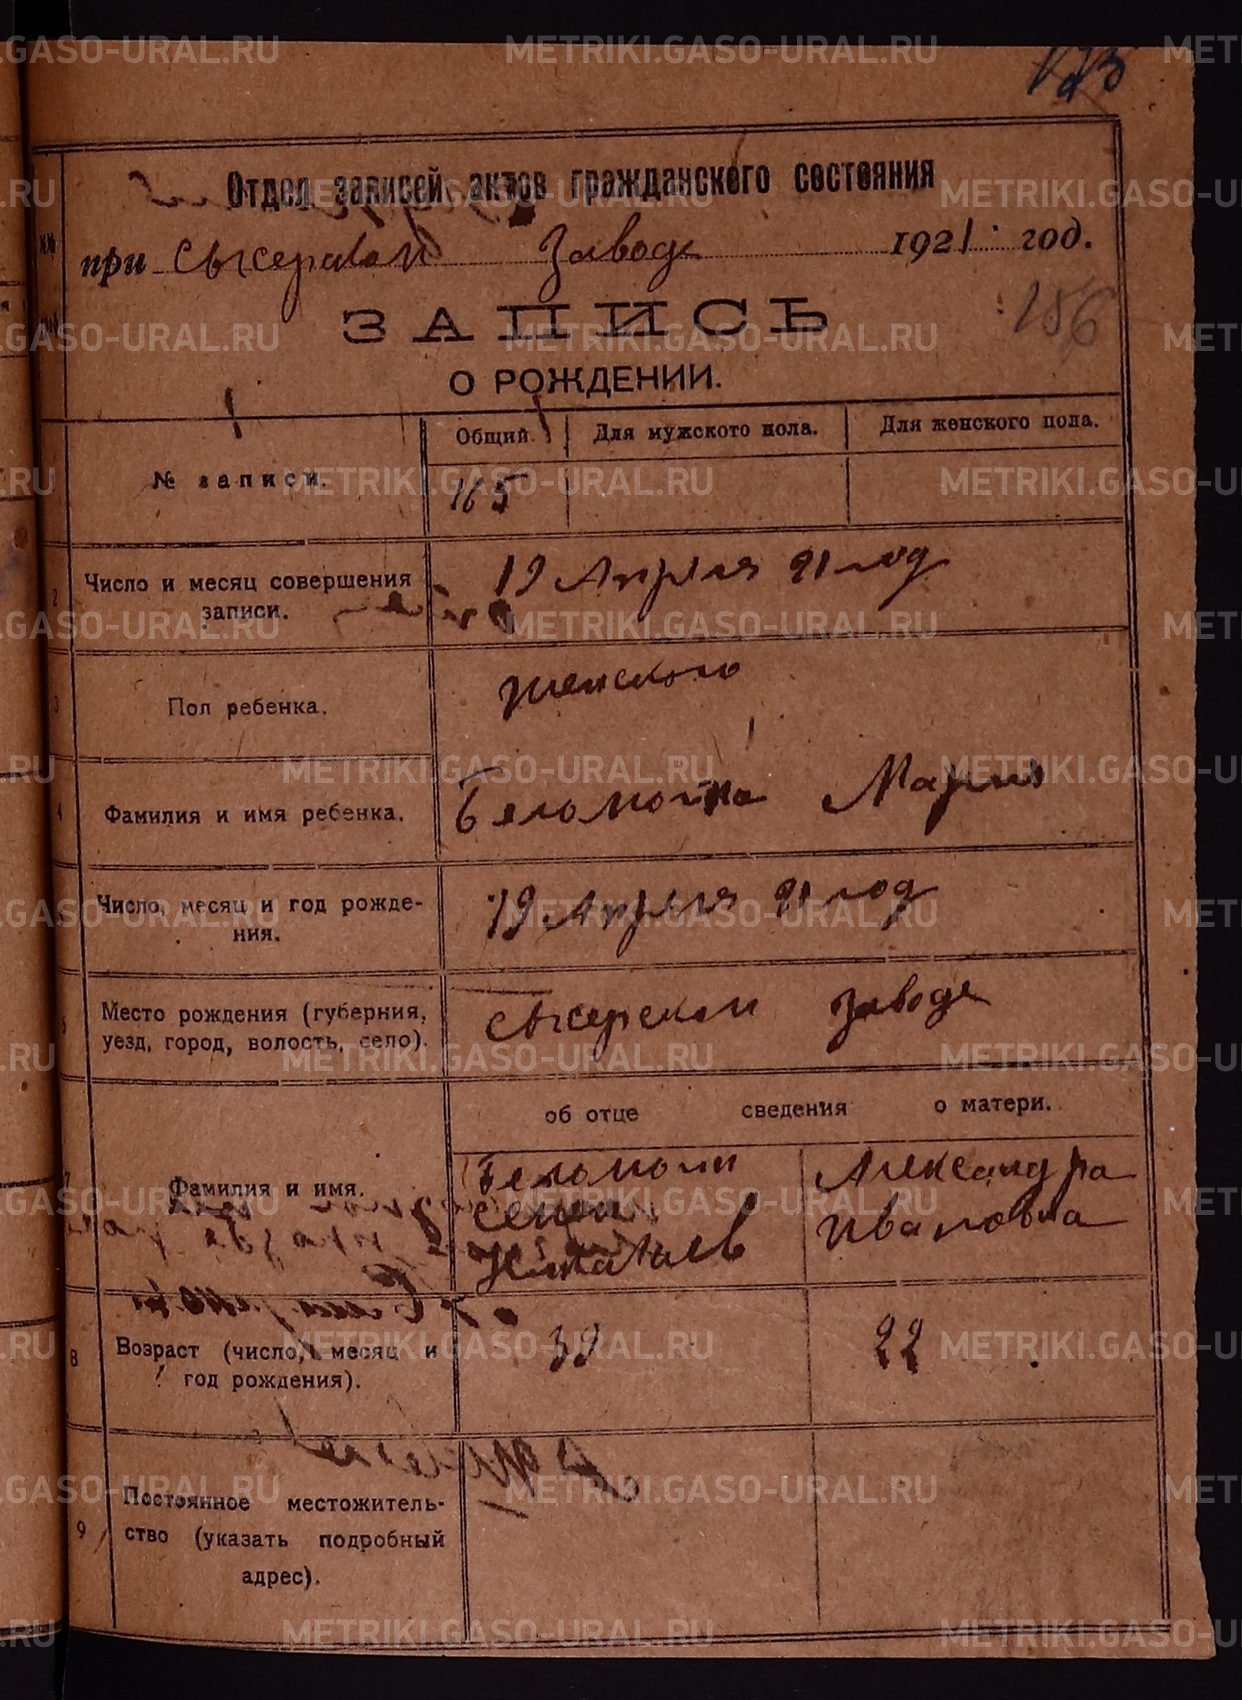 123
Отдел записей актов гражданского состояния
при Сысерском Заводе 1921 год.
156
ЗАПИСЬ
О РОЖДЕНИИ.
№ записи. Общий. Для мужского пола. Для женского пола.
165
2 Число и месяц совершения записи. 19 Апреля 21 год
3 Пол ребенка. женского
4 Фамилия и имя ребенка. Мария
Число, месяц и год рожде-
ния. 19 Апреля 21 год
6 Место рождения (губерния,
уезд, город, волость, село). Сысерском Заводе
об отце сведения о матери.
7 Фамилия и имя.
Александра
Ивановна
8 Возраст (число, месяц и
год рождения). 39 22
9 Постоянное местожитель-
ство (указать подробный
адрес).
METRIKI.GASO-URAL.RU